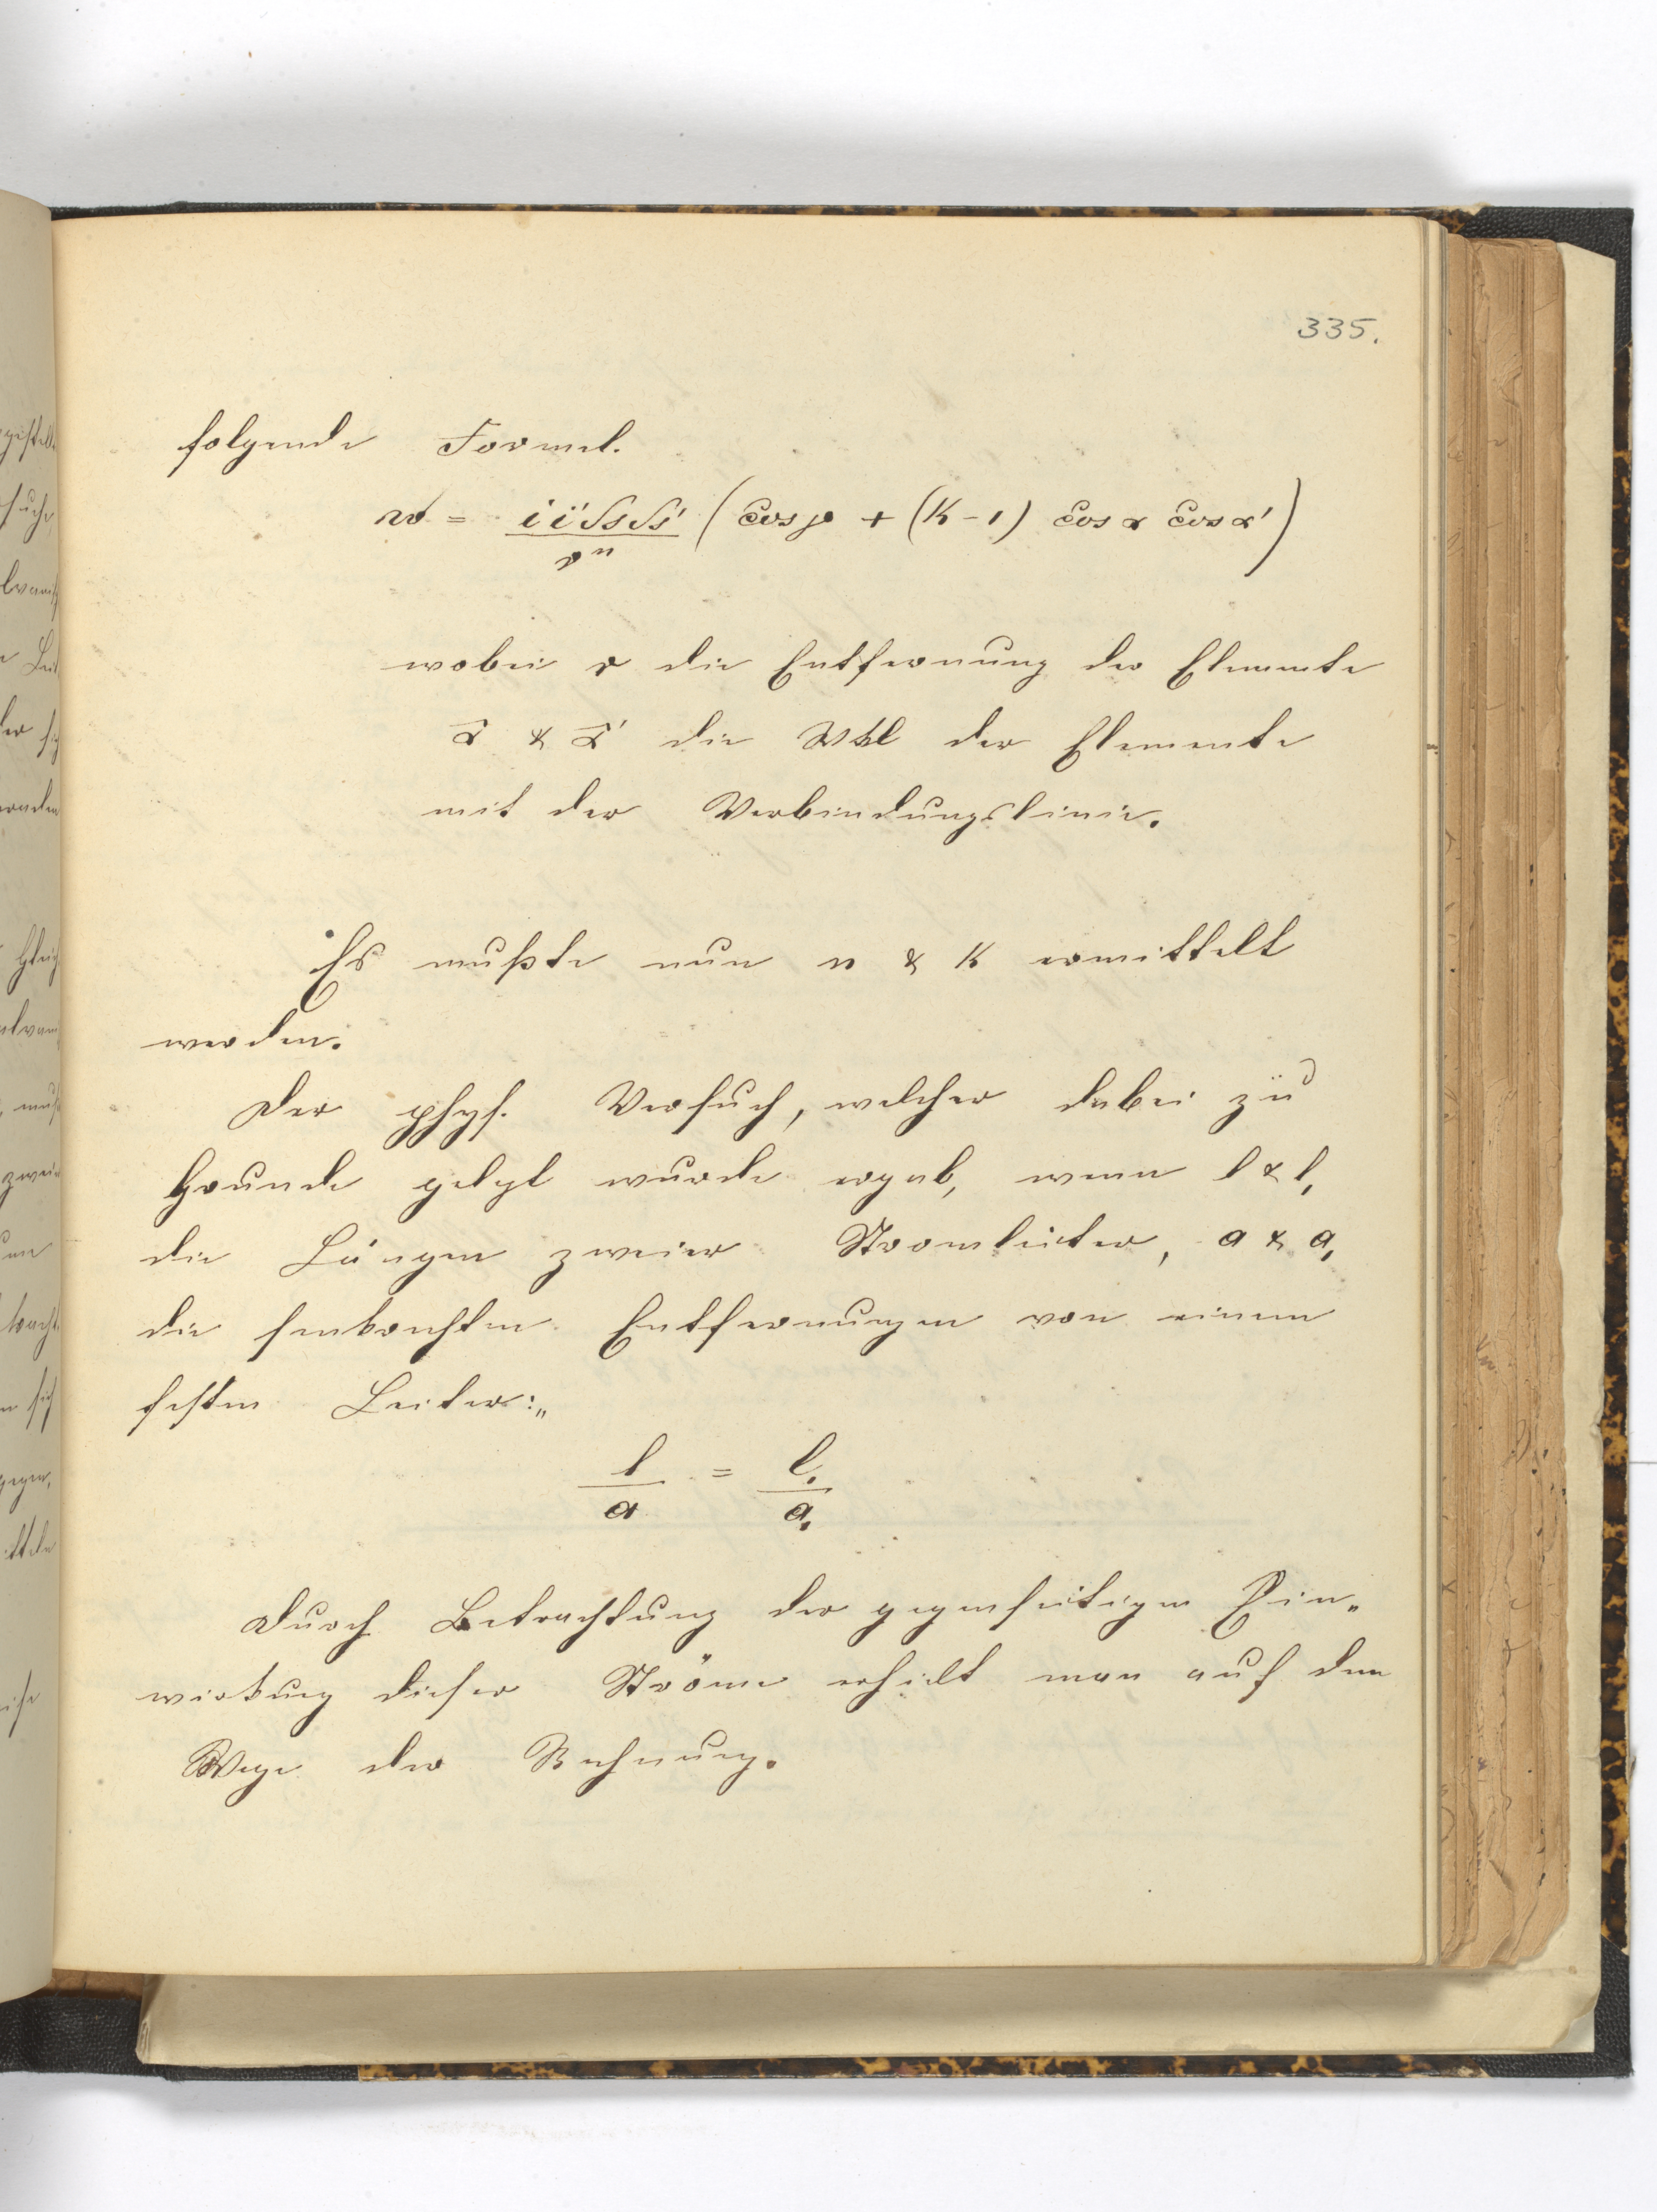 335.
folgende Formel.
w = i i' δs δs' / r^n (cos ρ + (k-1) cos α cos α')
wobei r die Entfernung der Elemente
α & α' die Wkl der Elemente
mit der Verbindungslinie.
Es mußte nun n & k ermittelt
werden.
Der phys. Versuch, welcher dabei zu
Grunde gelegt wurde ergab, wenn l & l,
die Längen zweier Stromleiter, a & a,
die senkrechten Entfernungen von einem
festen Leiter:„
l/a = l,/a,
Durch Betrachtung der gegenseitigen Ein„
wirkung dieser Ströme erhielt man auf dem
Wege der Rechnung.